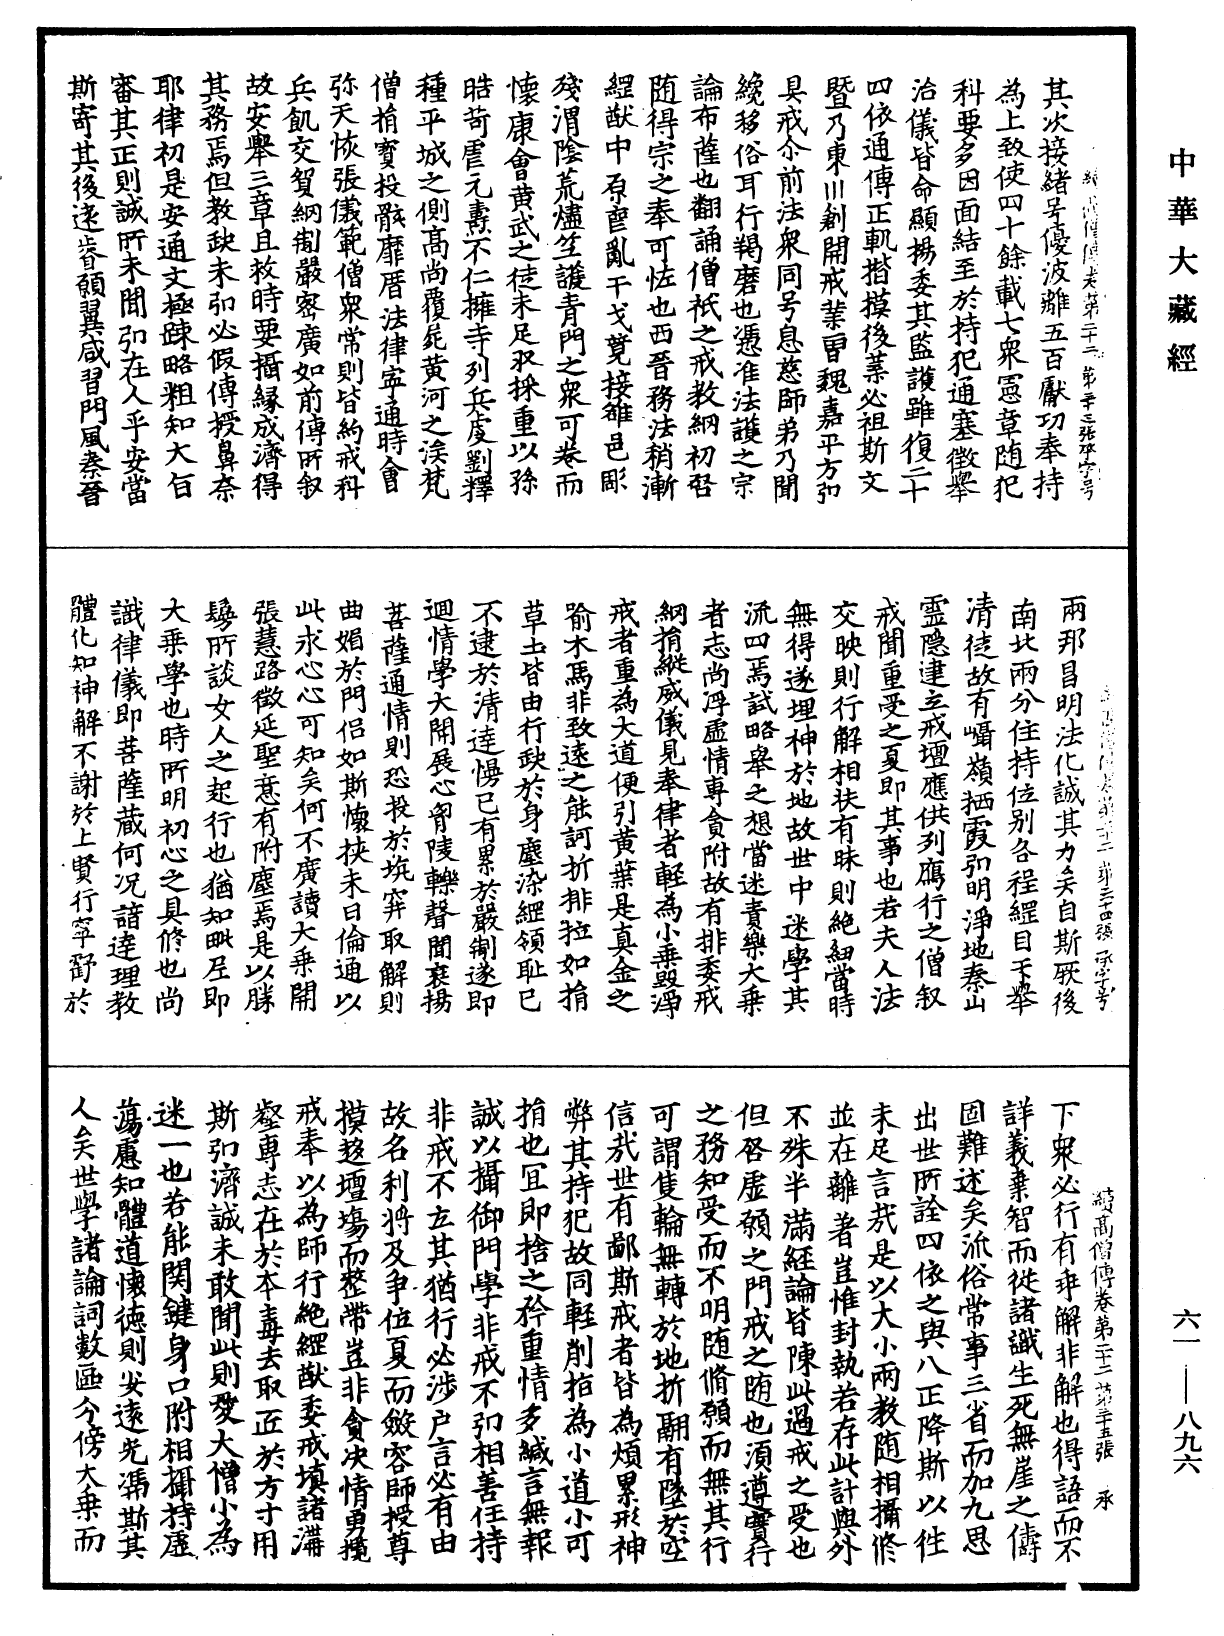 中華大藏經
其次接緒号優波離五百獻功奉持
為上致使四十餘載七衆憲章随犯
科要多因面結至於持犯通塞徵舉
治儀皆命顯揚委其監護雖復二十
四依通傳正軌揩摸後葉必祖斯文
暨乃東川創開戒業曹魏嘉平方弘
具戒尒前法衆同号息慈師弟乃聞
纔移俗耳行羯磨也憑准法護之宗
論布薩也翻誦僧祇之戒教網初啓
随得宗之奉可恠也西晉務法稍漸
經猷中原亂干戈覓接雒邑彫
殘渭陰荒燼竺護青門之衆可卷而
懷康會黄武之徒未足収採重以孫
晧苛虐元熹不仁擁寺列兵虔劉釋
種平城之側髙尚覆屍黄河之涘梵
僧捐寳投骸靡厝法律寧通時會
弥天恢張儀範僧衆常則皆約戒科
兵飢交貿網制嚴密廣如前傳所叙
故安舉三章且救時要攝縁成濟得
其務焉但教缺未弘必假傅授鼻奈
耶律初是安通文極踈略粗知大旨
審其正則誠所未聞弘在人乎安當
斯寄其後遠睿願翼咸習門風秦晉
兩邦昌明法化誠其力矣自斯厥後
南北兩分住持位别各程經目不舉
清徒故有嵎嶺栖霞弘明淨地秦山
靈隐建立戒壇應供列鴈行之僧叙
戒聞重受之夏即其事也若夫人法
交映則行解相扶有昧則絶紐當時
無得遂埋神於地故世中迷學其
流四焉試略舉之想當迷責樂大乗
者志尚浮虚情専貪附故有排委戒
網捐縱威儀見奉律者輕為小乗毀淨
戒者重為大道便引黄葉是真金之
喻木馬非致遠之能訶折排拉如捐
草土皆由行缺於身塵染經領耻已
不逮於清達愕已有累於嚴制遂即
迴情學大開展心胷陵轢聲聞裒揚
菩薩通情則恐投於坑穽取解則
曲媚於門侣如斯懷挾未日倫通以
此求心心可知矣何不廣讀大乗開
張慧路徵延聖意有附塵焉是以勝
鬘所談女人之起行也猶知毗尼即
大乗學也時所明初心之具修也尚
識律儀即菩薩藏何况諳達理教
體化知神解不謝於上賢行寧罸於
續髙僧傳卷第二十二 第三十五張 承
下衆必行有乖解非解也得語而不
詳義棄智而從諸識生死無崖之儔
固難述矣流俗常事三省而加九思
出世所詮四依之與八正降斯以往
未足言哉是以大小兩教随相攝修
並在離著豈惟封執若存此計與外
不殊半滿經論皆陳此過戒之受也
但啓虚願之門戒之随也須遵實行
之務知受而不明随脩願而無其行
可謂隻輪無轉於地折翮有墜於空
信哉世有鄙斯戒者皆為煩累形神
弊其持犯故同輕削指為小道小可
捐也冝即捨之矜重情多緘言無報
誠以攝御門學非戒不弘相善住持
非戒不立其猶行必涉户言必有由
故名利將及爭位夏而斂容師授尊
摸趍壇塲而整帶豈非貪决情勇攬
戒奉以為師行絶經猷委戒填諸溝
壑専志在於本毒去取匠於方寸用
斯弘濟誠未敢聞此則愛大憎小為
迷一也若能関鍵身口附相攝持虚
蕩慮知體道懷德則安遠光馮斯其
人矣世學諸論詞數區分傍大乗而
六一——八九六